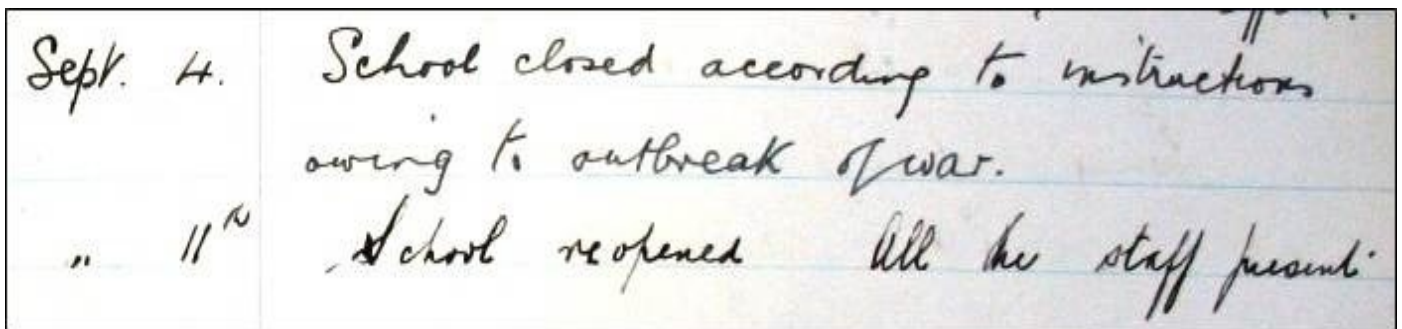 Sept. 4. School closed according to instructions
owing to outbreak of war.
„ 11th School reopened All the staff present.